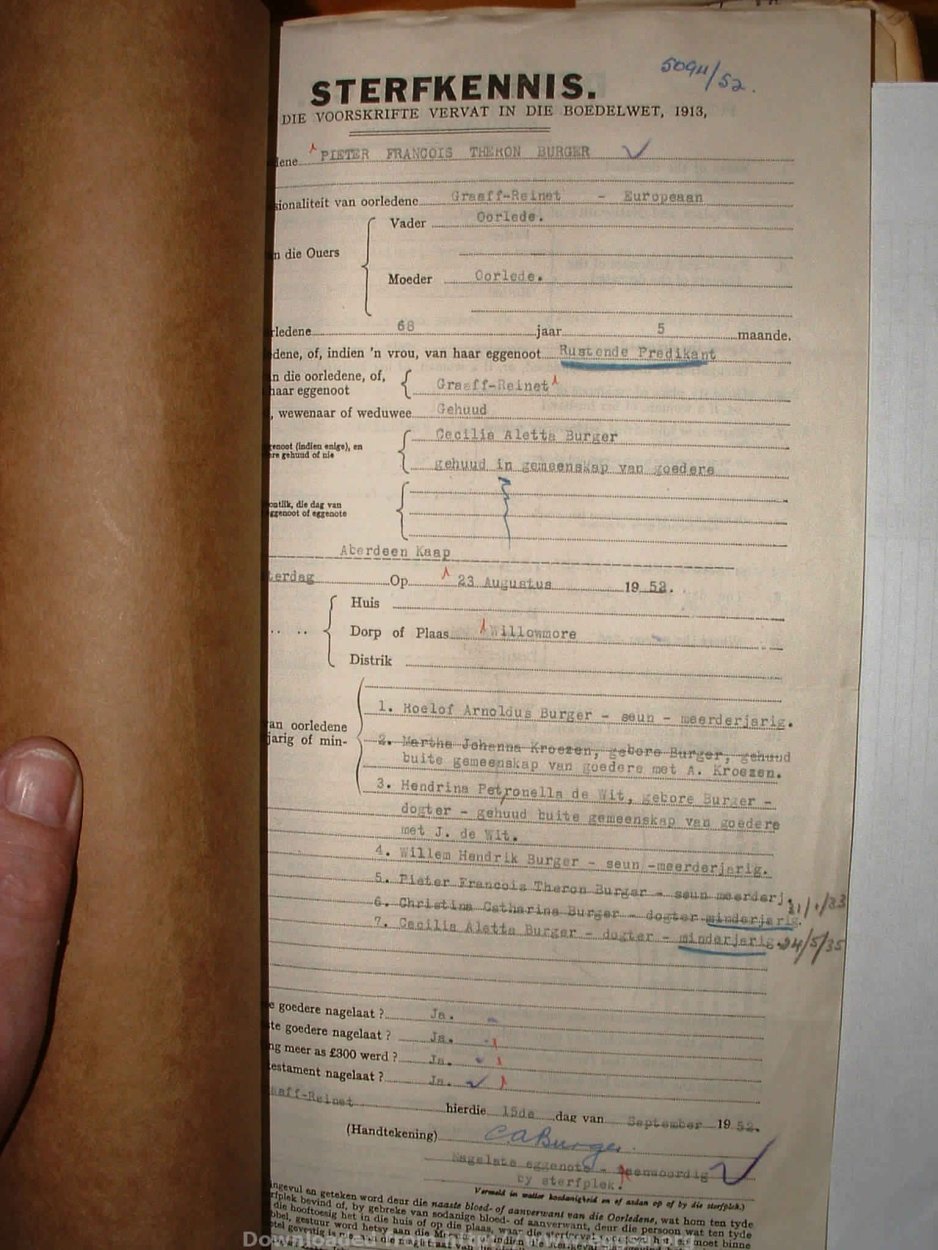 5094/52.
STERFKENNIS.
DIE VOORSKRIFTE VERVAT IN DIE BOEDELWET, 1913,
lene PIETER FRANCOIS THERON BURGER
sionaliteit van oorledene Graaff-Reinet - Europeaan
Vader Oorlede.
n die Ouers
Moeder Oorlede.
rledene 68 jaar 5 maande.
edene, of, indien 'n vrou, van haar eggenoot Rustende Predikant
n die oorledene, of,
haar eggenoot Graaff-Reinet
, wewenaar of weduwee Gehuud
genoot (indien enige), en Cecilia Aletta Burger
ere gehuud of nie gehuud in gemeenskap van goedere
ontlik, die dag van
ggenoot of eggenote
Aberdeen Kaap
terdag Op 23 Augustus 1952.
Huis
Dorp of Plaas Willowmore
Distrik
1. Roelof Arnoldus Burger - seun - meerderjarig.
van oorledene
jarig of min-
2. Martha Johanna Kroezen, gebore Burger, gehuud
buite gemeenskap van goedere met A. Kroezen.
3. Hendrina Petronella de Wit, gebore Burger -
dogter - gehuud buite gemeenskap van goedere
met J. de Wit.
4. Willem Hendrik Burger - seun -meerderjarig.
5. Pieter Francois Theron Burger - seun meerderj.
6. Christina Catharina Burger - dogter minderjarig. 21/1/33
7. Cecilia Aletta Burger - dogter - minderjarig 24/5/35
e goedere nagelaat ? Ja.
ste goedere nagelaat ? Ja.
ng meer as £300 werd ? Ja.
testament nagelaat ? Ja.
aaff-Reinet hierdie 15de dag van September 1952.
(Handtekening) C A Burger.
Nagelate eggenote - teenwoordig
by sterfplek.
Vermeld in watter hoedanigheid en of aldan op of by die sterfplek.)
ingevul en geteken word deur die naaste bloed- of aanverwant van die Oorledene, wat hom ten tyde
rfplek bevind of, by gebreke van sodanige bloed- of aanverwant, deur die persoon wat ten tyde